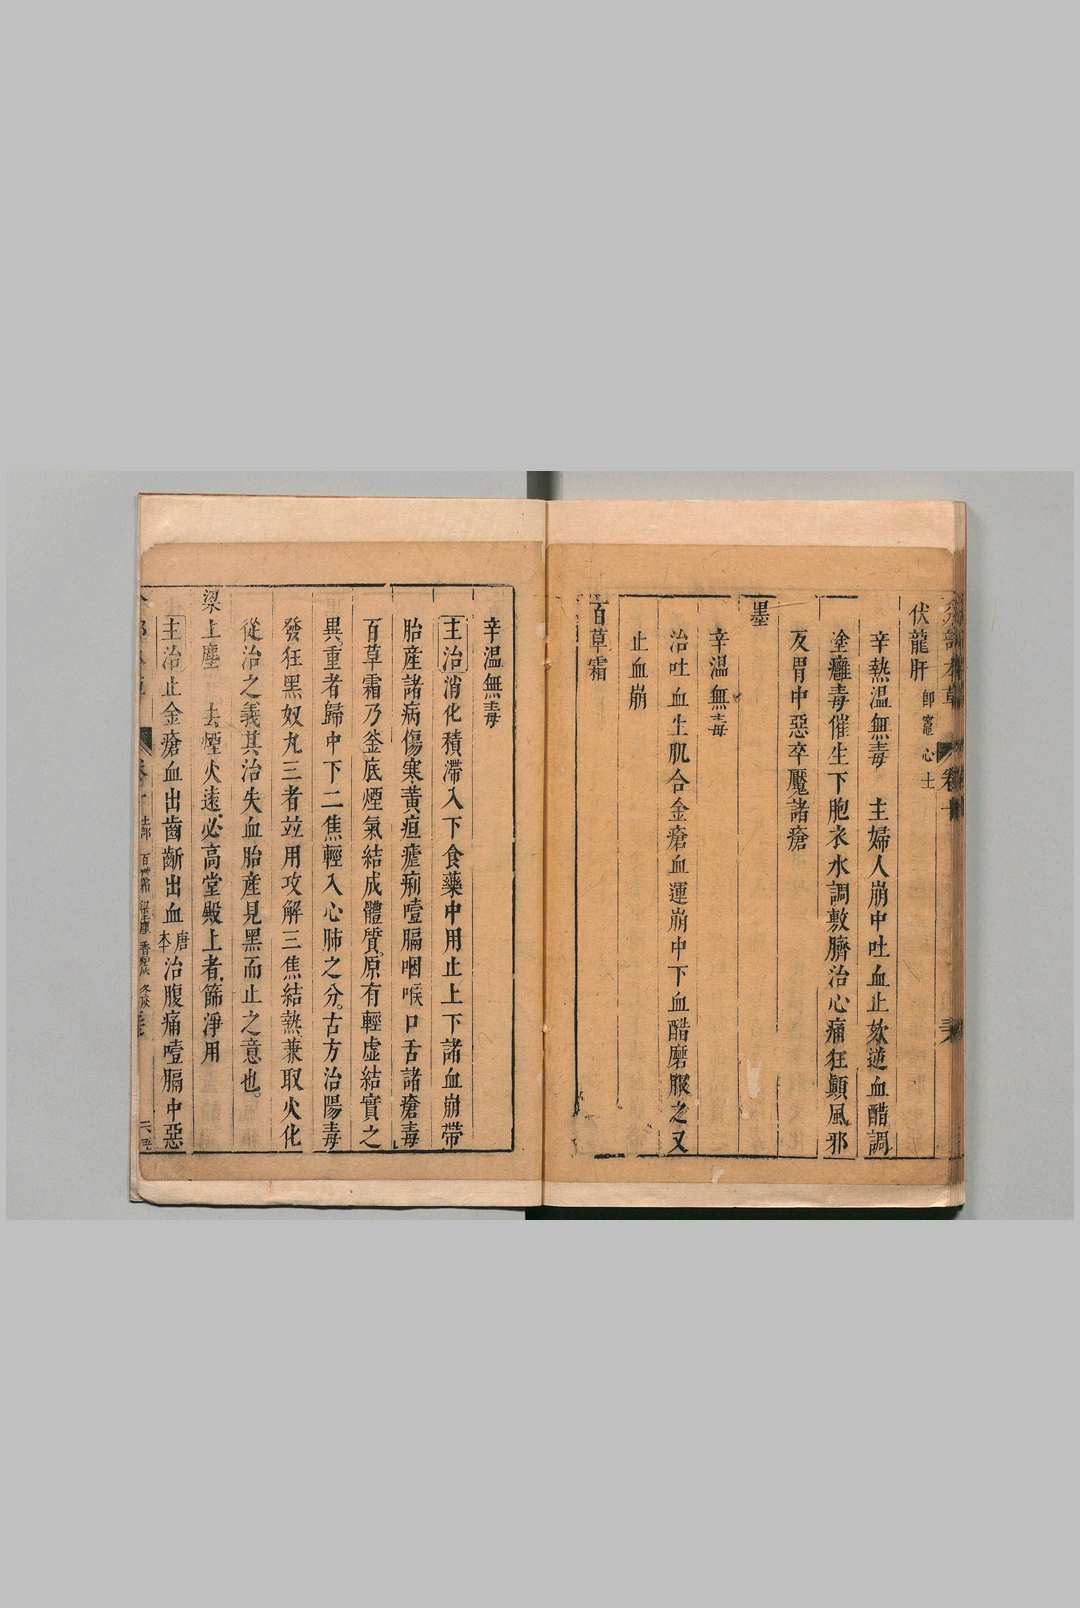 伏龍肝 即竈心土
辛熱溫無毒 主婦人崩中吐血止欬逆血醋調
塗癰毒催生下胞衣水調敷臍治心痛狂顛風邪
反胃中惡卒魘諸瘡
墨
辛溫無毒
治吐血生肌合金瘡血運崩中下血醋磨服之又
止血崩
百草霜
辛溫無毒
主治消化積滯入下食藥中用止上下諸血崩帶
胎産諸病傷寒黃疸瘧痢噎膈咽喉口舌諸瘡毒
百草霜乃釜底煙氣結成體質。原有輕虛結實之
異。重者歸中下二焦輕入心肺之分。古方治陽毒
發狂黑奴丸三者並用攻解三焦結熱。兼取火化
從治之義其治失血胎産見黑而止之意也。
梁上塵 去煙火遠必高堂殿上者篩淨用
主治止金瘡血出齒齗出血唐本治腹痛噎膈中惡